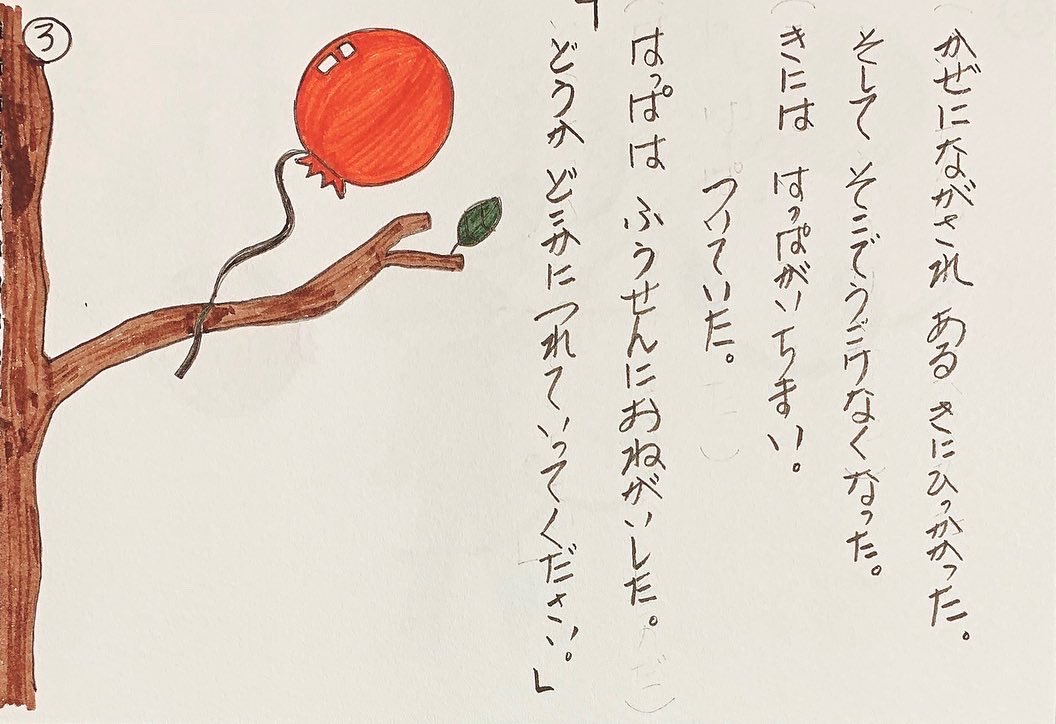 ③
かぜにながされ ある きにひっかかった。
そして そこでうごけなくなった。
きには はっぱがいちまい。
ついていた。
はっぱは ふうせんにおねがいした。
「どうか どこかにつれていってください。」